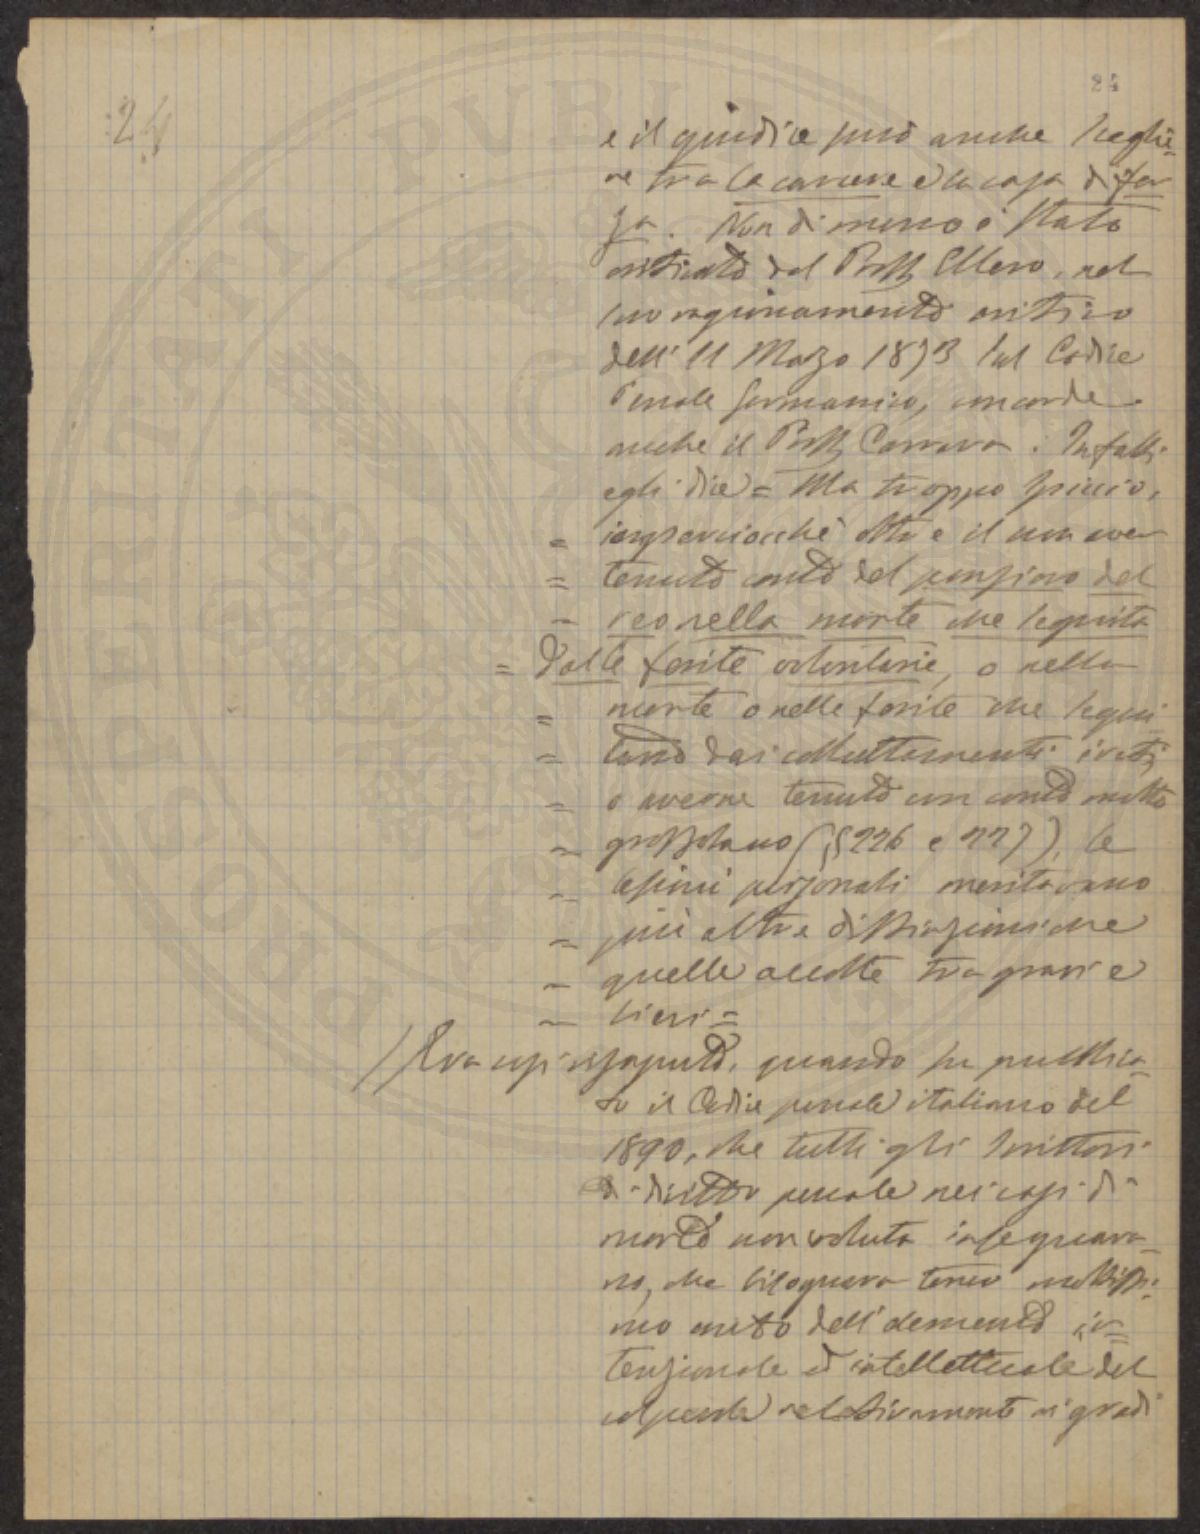 24
24
e il giudice può anche sceglie-
re tra la carcere e la casa di for
za. Non di meno è stato
criticato dal Proff Ellero, nel
suo ragionamento critico
dell' 11 Marzo 1873 sul Codice
Penale Germanico, concorde
anche il Proff Carrara. Infatti
egli dice = Ma troppo spiccio,
= imperciocchè oltre il non aver
= tenuto conto del pensiero del
= reo nella morte che seguita
= dalle ferite volontarie, o nella
= morte o nelle ferite che segui
= tano dai colluttamenti irati,
= o averne tenuto un conto molto
= grossolano (§§ 226 e 227), le
= lesioni personali meritavano
= più altre distinzioni che
= quelle accolte tra gravi e
= lievi =
/ Era cosi risaputo, quando fu pubblica-
to il Codice penale italiano del
1890, che tutti gli scrittori
di diritto penale nei casi di
morte non voluta insegnava-
no, che bisognava tener moltissi-
mo conto dell'elemento in=
tenzionale ed intellettuale del
colpevole relativamente ai gradi